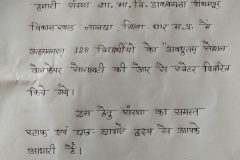 हमारी संस्था शा. मा. वि.
विकासखण्ड नालछा, जिला धार म.प्र. में
अध्ययनरत 128 विद्यार्थियों को "अवधूतम् संस्थान
वेलफेयर सोसायटी की ओर से स्वेटर वितरित
किये गये।
इस हेतु संस्था का समस्त
स्टाफ एवं छात्र-छात्रायें हृदय से आपके
आभारी है।